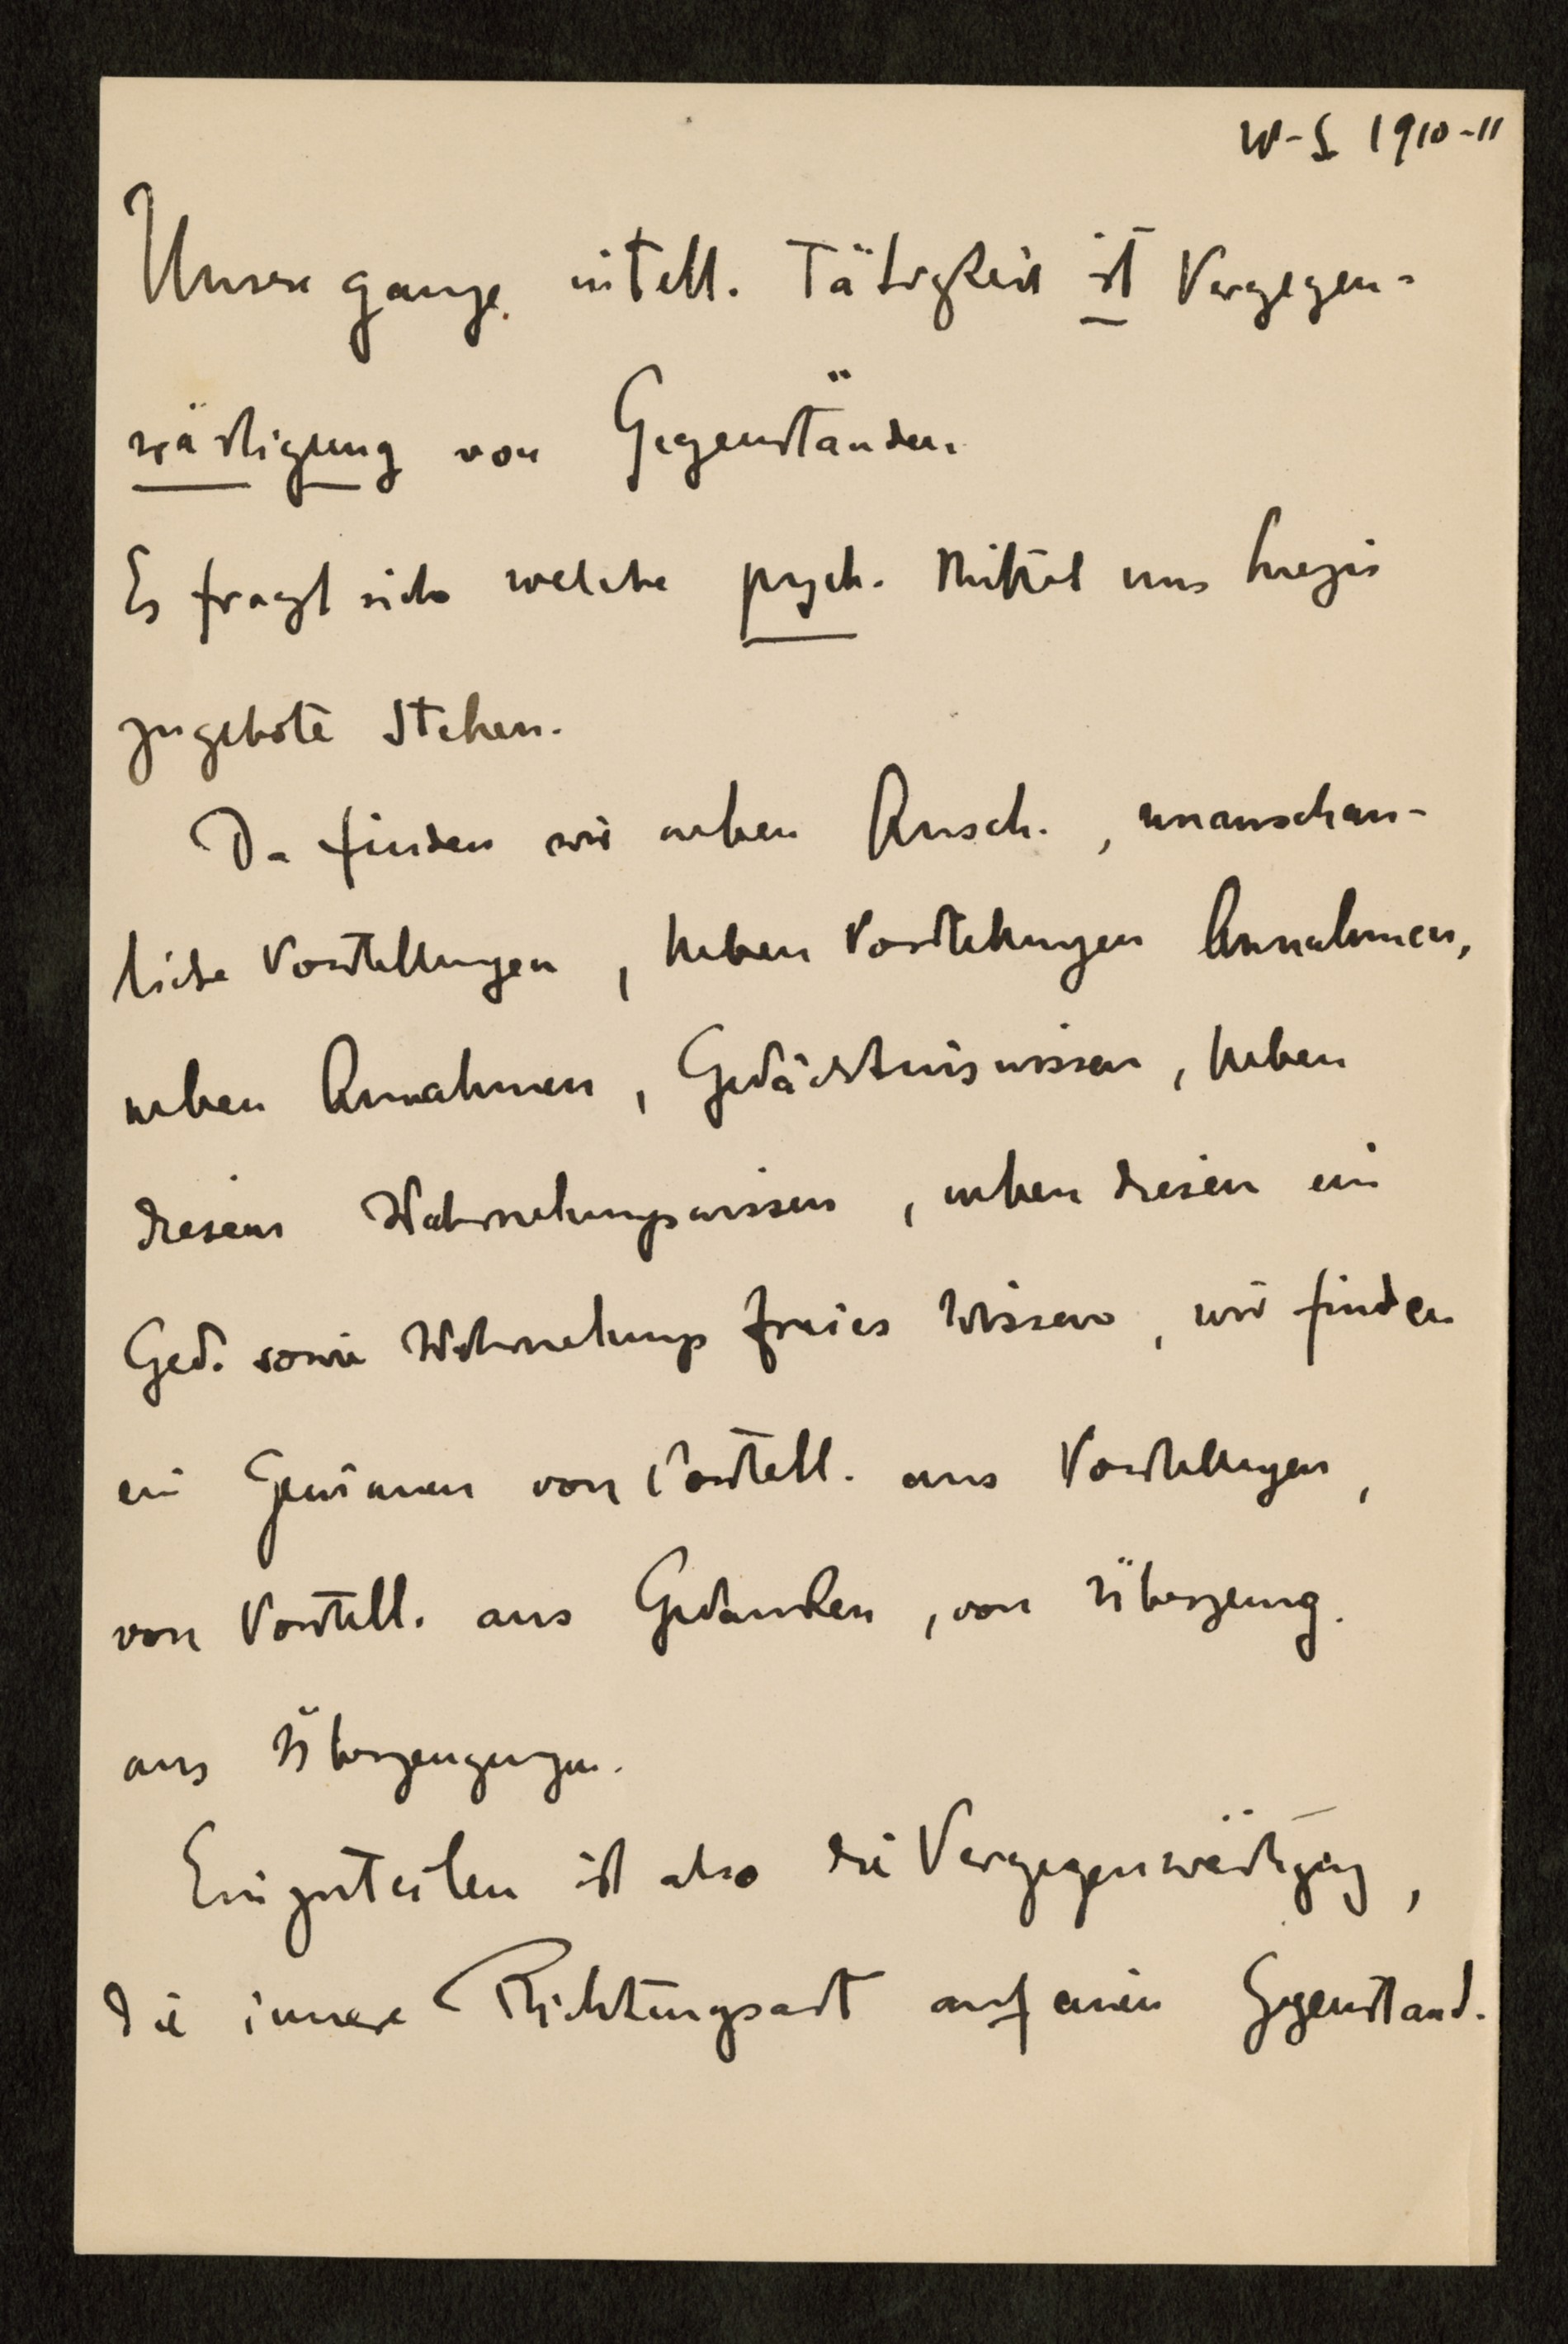 W-S 1910-11
Unsere ganze intell. Tätigkeit ist Vergegen-
wärtigung von Gegenständen.
Es fragt sich welche psych. Mittel uns hiezu
zugebote stehen.
Da finden wir neben Ansch., unanschau-
liche Vorstellungen, neben Vorstellungen Annahmen,
neben Annahmen, Gedächtniswissen, neben
diesem Wahrnehmungswissen, neben diesen ein
Ged. sowie Wahrnehmungs freies Wissen, wir finden
ein Gewinnen von Vorstell. aus Vorstellungen,
von Vorstell. aus Gedanken, von Überzeug.
aus Überzeugungen.
Einzuteilen ist also die Vergegenwärtigung,
die innere Richtungsart auf einen Gegenstand.